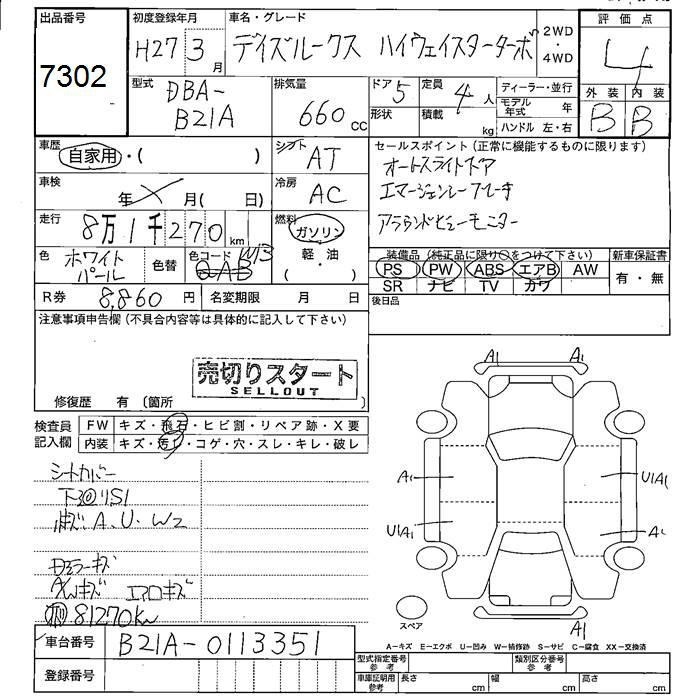 出品番号
7302
初度登録年月
H27 3月
車名・グレード
デイズルークス ハイウェイスターターボ
2WD
・
4WD
評価点
4
外装 内装
B B
型式
DBA-
B21A
排気量
660cc
ドア 5
形状
定員 4人
積載 kg
ディーラー・並行
モデル年式 年
ハンドル 左・右
車歴
自家用・( )
シフト
AT
セールスポイント(正常に機能するものに限ります)
オートスライドドア
エマージェンシーブレーキ
アラウンドビューモニター
車検
年 月( 日)
冷房
AC
走行
8万1千270km
燃料
ガソリン
・
軽・油
( )
色
ホワイト
パール
色替
色コード
QAB W13
装備品(純正品に限り○をつけて下さい)
PS PW ABS エアB AW
SR ナビ TV カワ
新車保証書
有・無
R券 8,860円
名変期限 月 日
後日品
注意事項申告欄(不具合内容等は具体的に記入して下さい)
売切りスタート
SELLOUT
修復歴 有(箇所 )
検査員
記入欄
FW キズ・飛石・ヒビ割・リペア跡・X要
内装 キズ・汚れ・コゲ・穴・スレ・キレ・破レ
シートカバー
A、U、W2
ドアミラーキズ
A/Wキズ エアロキズ
81270km
A1 A1
A1 U1A1
U1A1 A1
A1
スペア
A-キズ E-エクボ U-凹み W-補修跡 S-サビ C-腐食 XX-交換済
車台番号 B21A-0113351
登録番号
型式指定番号
参考
類別区分番号
参考
車庫証明用
参考
長さ cm 幅 cm 高さ cm